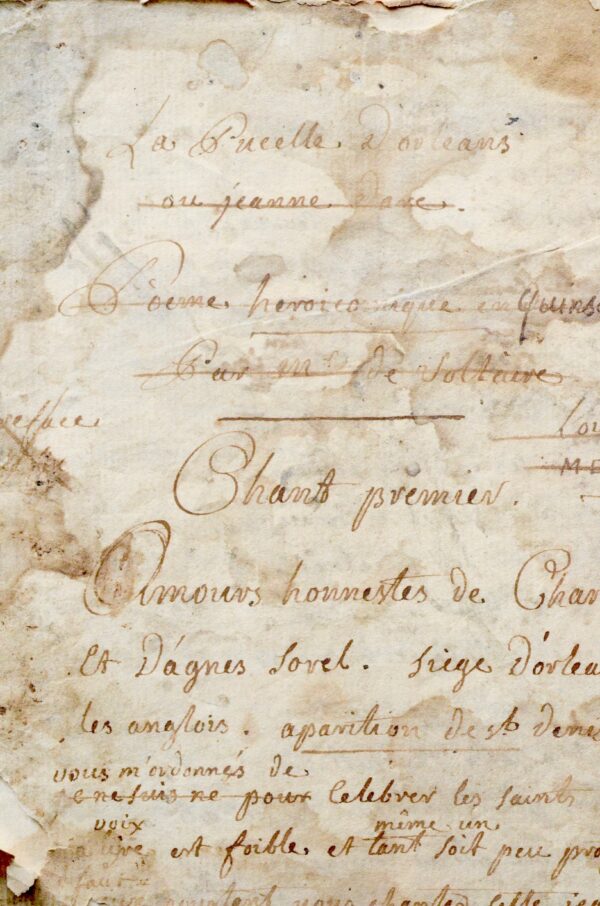 La Pucelle D'orleans
ou jeanne Darc.
Pöeme heroicomique en Quinse
Par Mr de Voltaire
Lou
Chant premier.
Amours honnestes de Char
Et D'agnes Sorel. Siège D'orlea
les anglois. aparition de st denis
vous m'ordonnés de
je ne suis né pour celebrer les saints
voix
même un
lire est foible et tant soit peu pro
faut
pourtant vous chanter cette jea